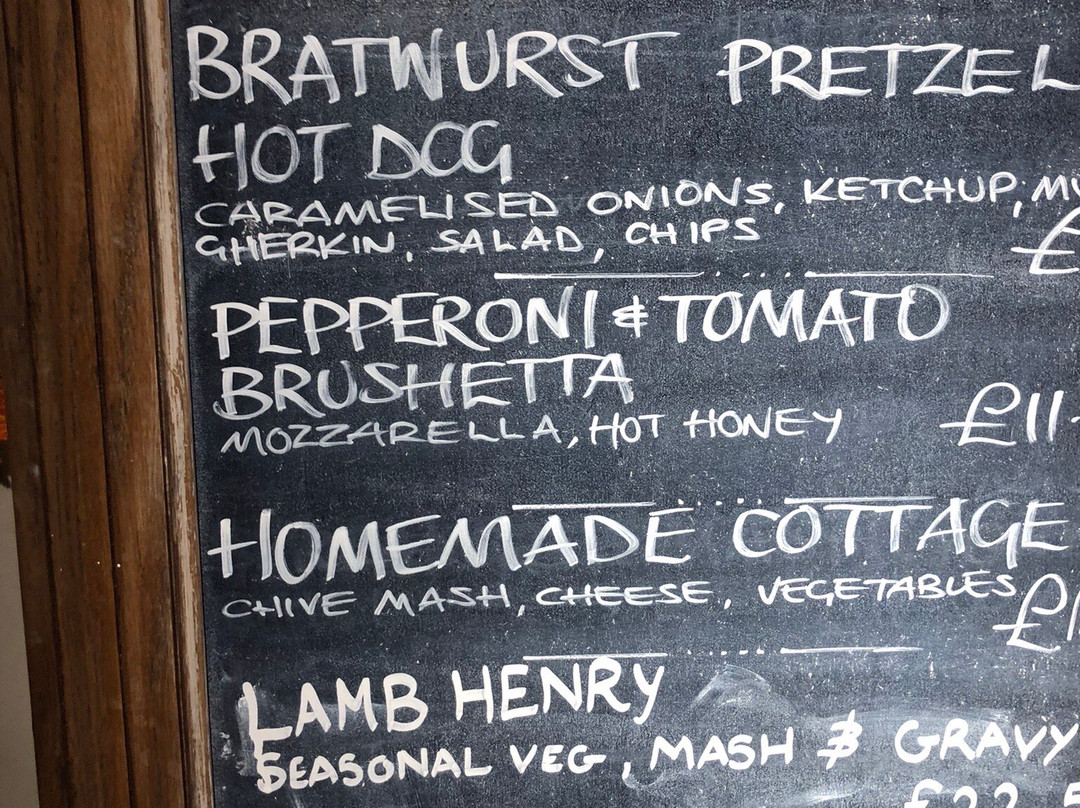 BRATWURST PRETZEL
HOT DOG
CARAMELISED ONIONS, KETCHUP,
GHERKIN, SALAD, CHIPS £
PEPPERONI & TOMATO
BRUSHETTA
MOZZARELLA, HOT HONEY £11
HOMEMADE COTTAGE
CHIVE MASH, CHEESE, VEGETABLES
£1
LAMB HENRY
SEASONAL VEG, MASH & GRAVY
£22.5